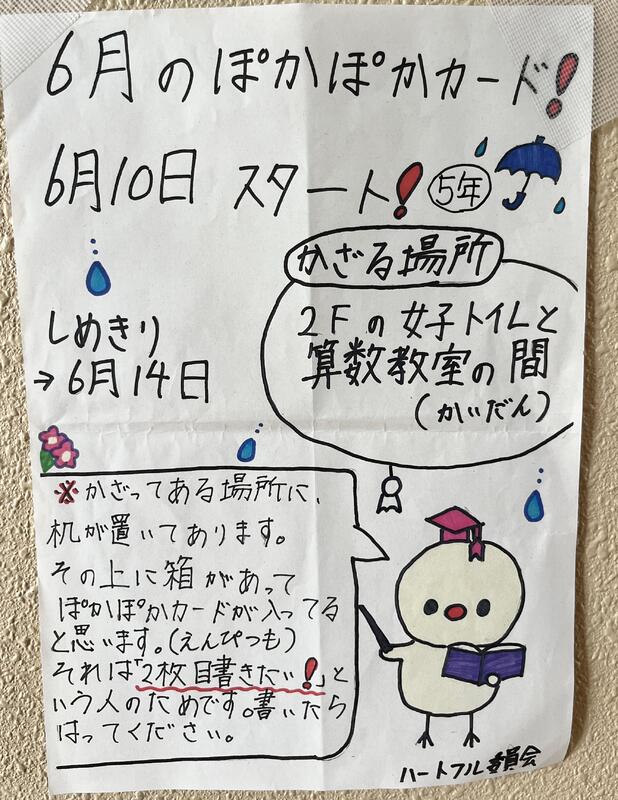 6月のぽかぽかカード!
6月10日 スタート! 5年
かざる場所
2Fの女子トイレと
算数教室の間
(かいだん)
しめきり
→6月14日
※かざってある場所に、
机が置いてあります。
その上に箱があって
ぽかぽかカードが入ってる
と思います。(えんぴつも)
それは「2枚目書きたい!」と
いう人のためです。書いたら
はってください。
ハートフル委員会